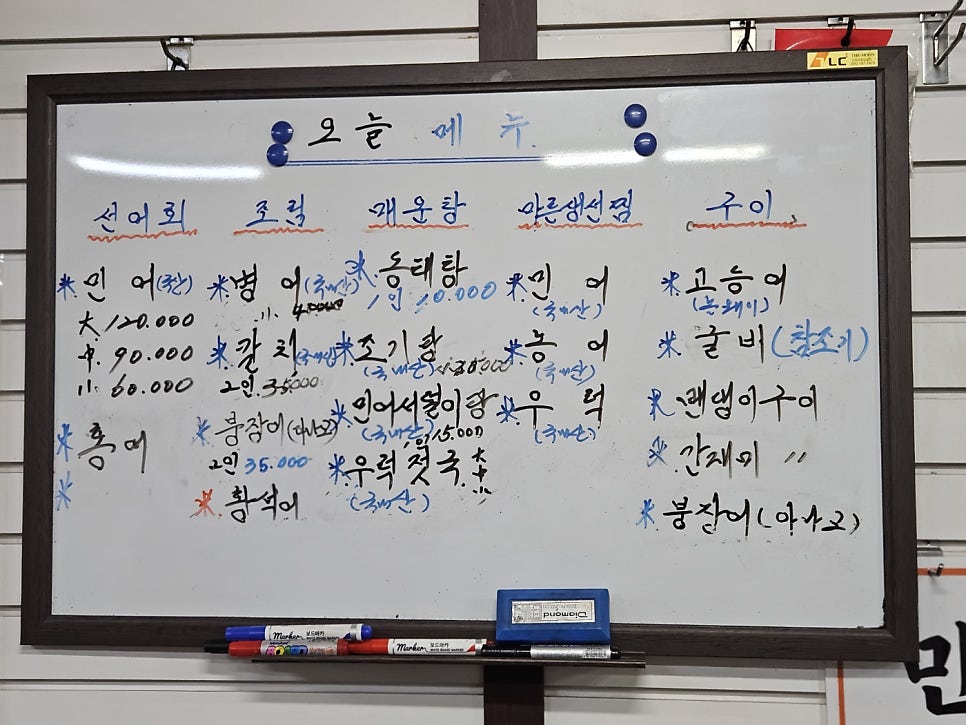 오늘 메뉴
선어회
* 민어(국산)
大 120.000
中. 90.000
小. 60.000
* 홍어
*
조림
* 병어(국내산)
小. 45000
* 갈치(국내산)
2인 35000
* 붕장어(아나고)
2인 35.000
* 황석어
매운탕
* 동태탕
1인 10.000
* 조기탕
(국내산)
* 민어서덜이탕
(국내산) 1인 15.000
* 우럭 젓국 大 中 小
(국내산)
마른생선찜
* 민어
(국내산)
* 농어
(국내산)
* 우럭
(국내산)
구이
* 고등어
(노르웨이)
* 굴비(참조기)
* 밴댕이구이
* 간재미 〃
* 붕장어(아나고)
LC
Diamond
Marker 보드마카
Marker 보드마카
민